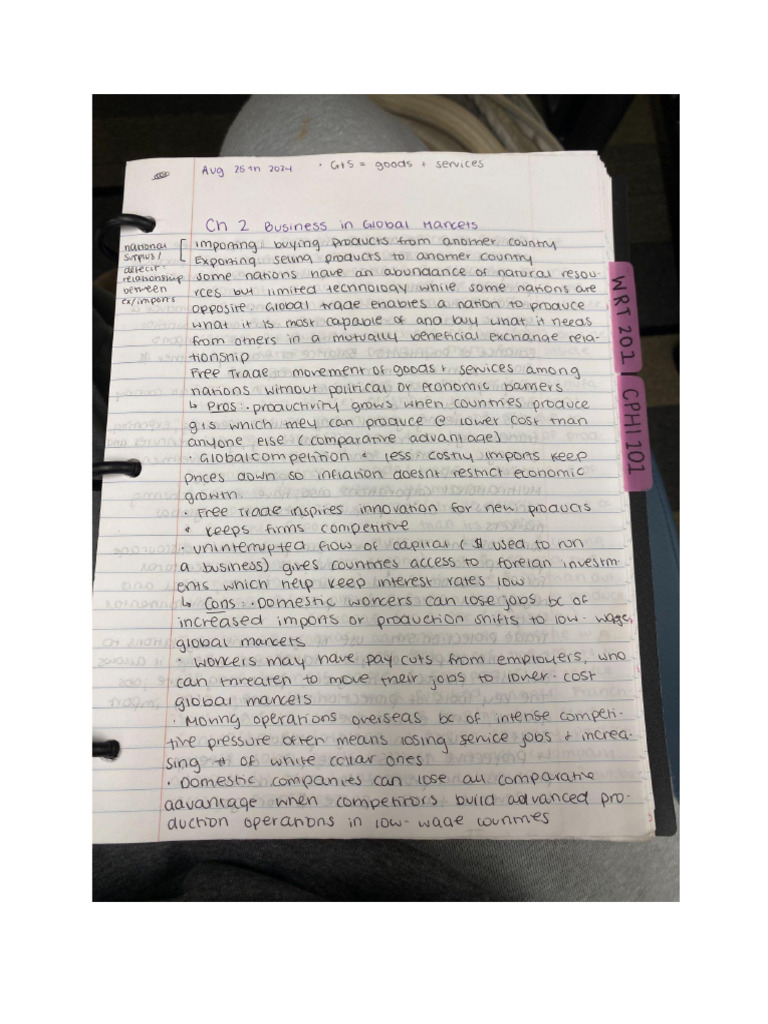 Aug 25th 2024 • G+S = goods + services
Ch 2 Business in Global Markets
national
surplus/
deficit:
relationship
between
ex/imports
Importing: buying products from another country
Exporting: selling products to another country
some nations have an abundance of natural resou-
rces but limited technology while some nations are
opposite. Global trade enables a nation to produce
what it is most capable of and buy what it needs
from others in a mutually beneficial exchange rela-
tionship
Free Trade: movement of goods + services among
nations without political or economic barriers
↳ Pros: • productivity grows when countries produce
g+s which they can produce @ lower cost than
anyone else (comparative advantage)
• Global competition + less costly imports keep
prices down so inflation doesnt restrict economic
growth
• Free trade inspires innovation for new products
+ keeps firms competitive
• uninterrupted flow of capital ($ used to run
a business) gives countries access to foreign investm
ents which help keep interest rates low
↳ Cons: • Domestic workers can lose jobs bc of
increased imports or production shifts to low-wage
global markets
• workers may have pay cuts from employers, who
can threaten to move their jobs to lower-cost
global markets
• Moving operations overseas bc of intense competi-
tive pressure often means losing service jobs + increa-
sing # of white collar ones
• Domestic companies can lose all comparative
advantage when competitors build advanced pro-
duction operations in low-wage countries
WRT 201
CPHI 101